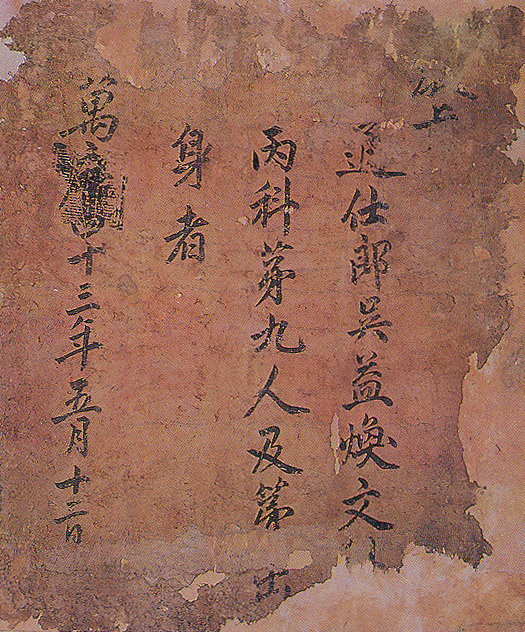 通仕郎吳益煥文
丙科第九人及第出
身者
萬曆四十三年五月十二日